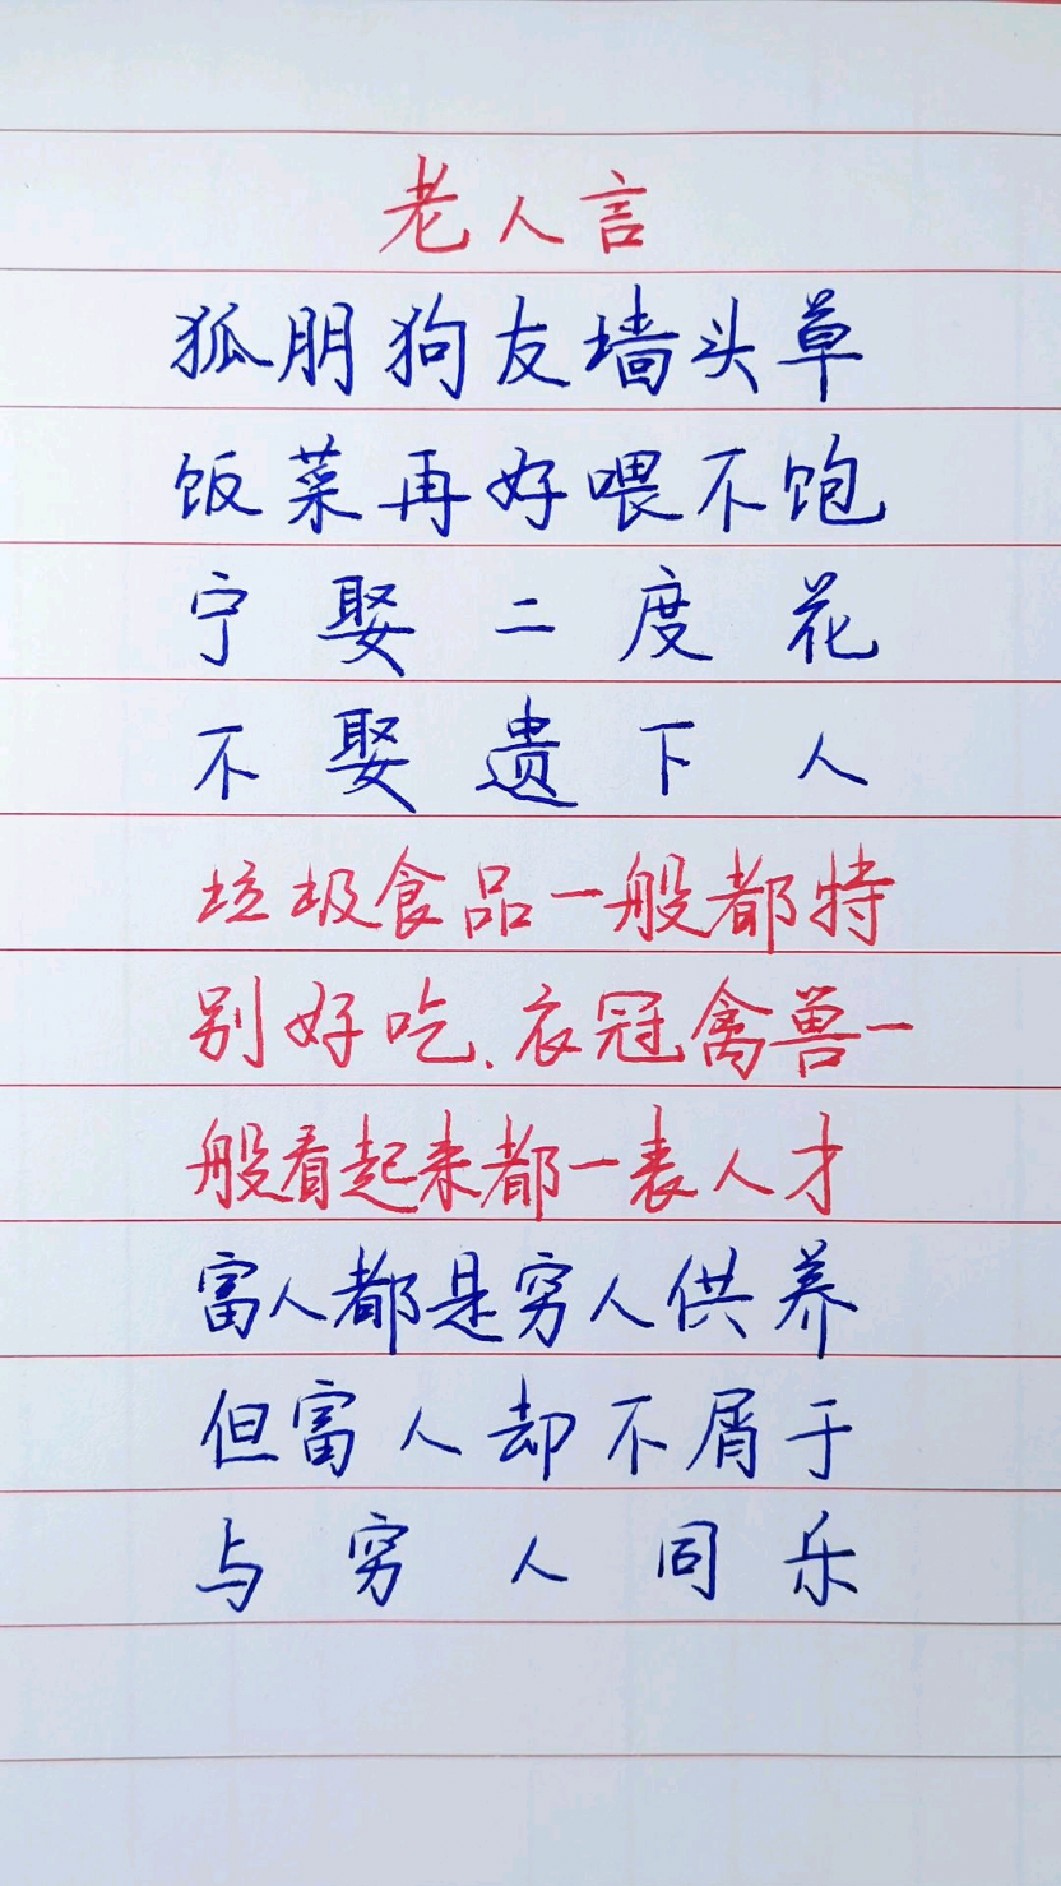 老人言
狐朋狗友墙头草
饭菜再好喂不饱
宁娶二度花
不娶遗下人
垃圾食品一般都特
别好吃、衣冠禽兽一
般看起来都一表人才
富人都是穷人供养
但富人却不屑于
与穷人同乐